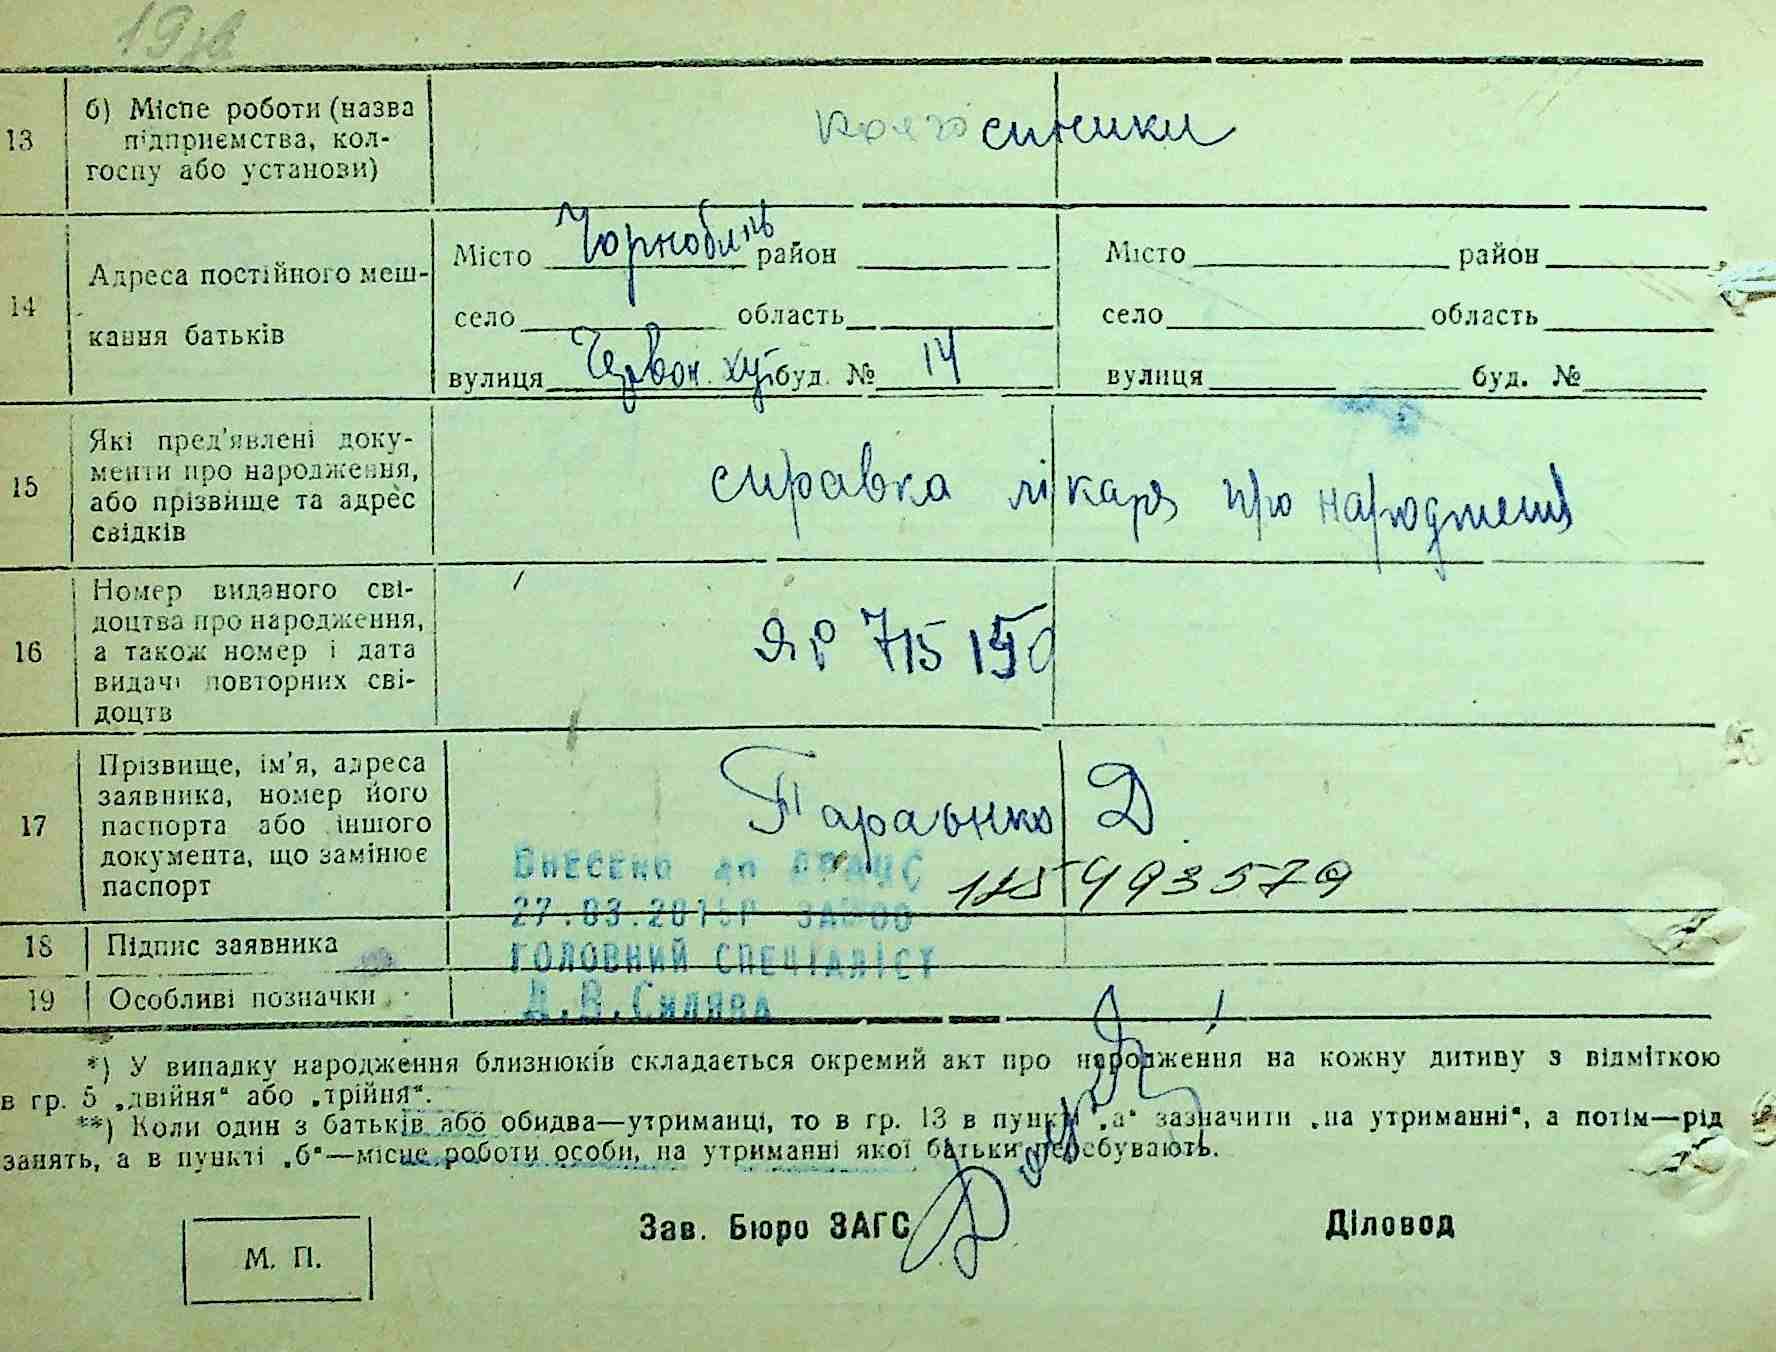 13
б) Місце роботи (назва
підприємства, кол-
госпу або установи)
колгоспники
14
Адреса постійного меш-
кання батьків
Місто Чорнобиль район
село область
вулиця Червон. хут. буд. № 14
Місто район
село область
вулиця буд. №
15
Які пред'явлені доку-
менти про народження,
або прізвище та адрес
свідків
справка лікаря про народження
16
Номер виданого сві-
доцтва про народження,
а також номер і дата
видачі повторних сві-
доцтв
ЯР 715150
17
Прізвище, ім'я, адреса
заявника, номер його
паспорта або іншого
документа, що замінює
паспорт
Д.
115493579
Внесено до ДРАЦС
18
Підпис заявника
ГОЛОВНИЙ СПЕЦІАЛІСТ
19
Особливі позначки
*) У випадку народження близнюків складається окремий акт про народження на кожну дитину з відміткою
в гр. 5 „двійня“ або „трійня“.
**) Коли один з батьків або обидва—утриманці, то в гр. 13 в пункті „а“ зазначити „на утриманні“, а потім—рід
занять, а в пункті „б“—місце роботи особи, на утриманні якої батьки перебувають.
Зав. Бюро ЗАГС
Діловод
М. П.